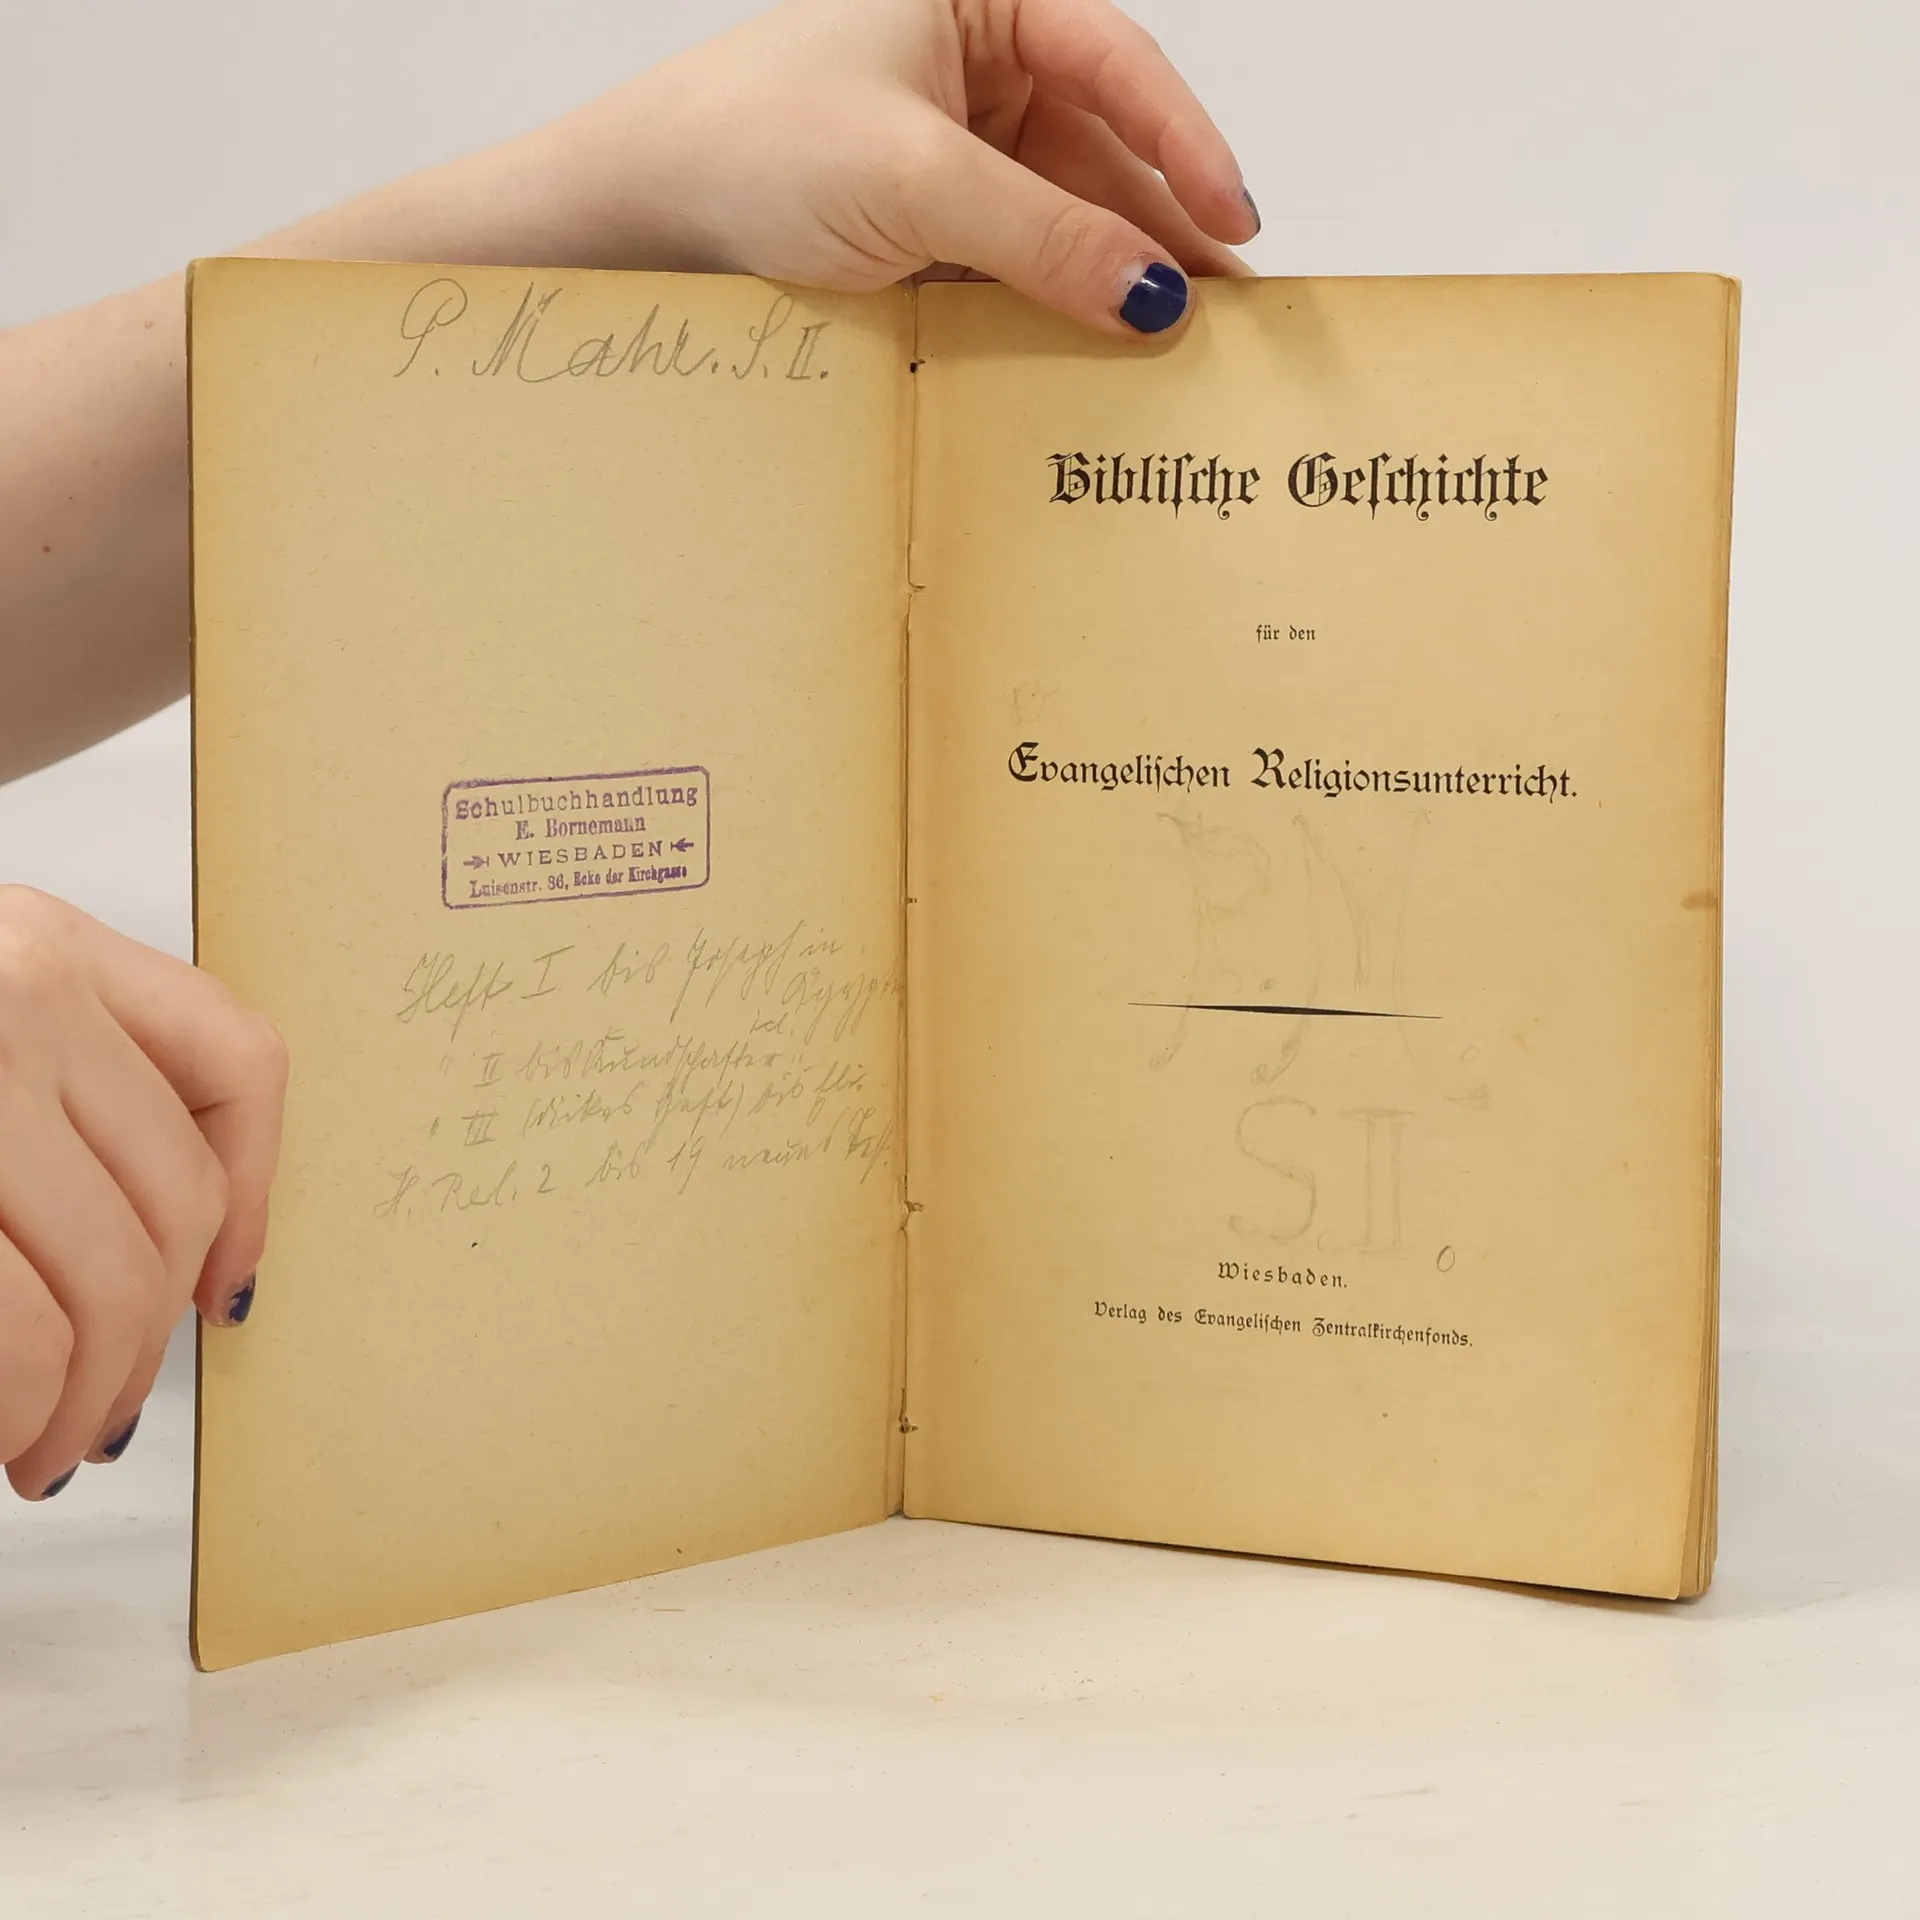 P. Mahr. S. II.
Schulbuchhandlung
E. Bornemann
WIESBADEN
Luisenstr. 36, Ecke der Kirchgasse
Heft I bis Joseph in
Ägypten
" II bis Kundschafter "
" III (dickes Heft) bis Eli.
H. Rel. 2 bis 19 neues Test.
Biblische Geschichte
für den
Evangelischen Religionsunterricht.
P. M.
S. II
Wiesbaden.
Verlag des Evangelischen Zentralkirchenfonds.